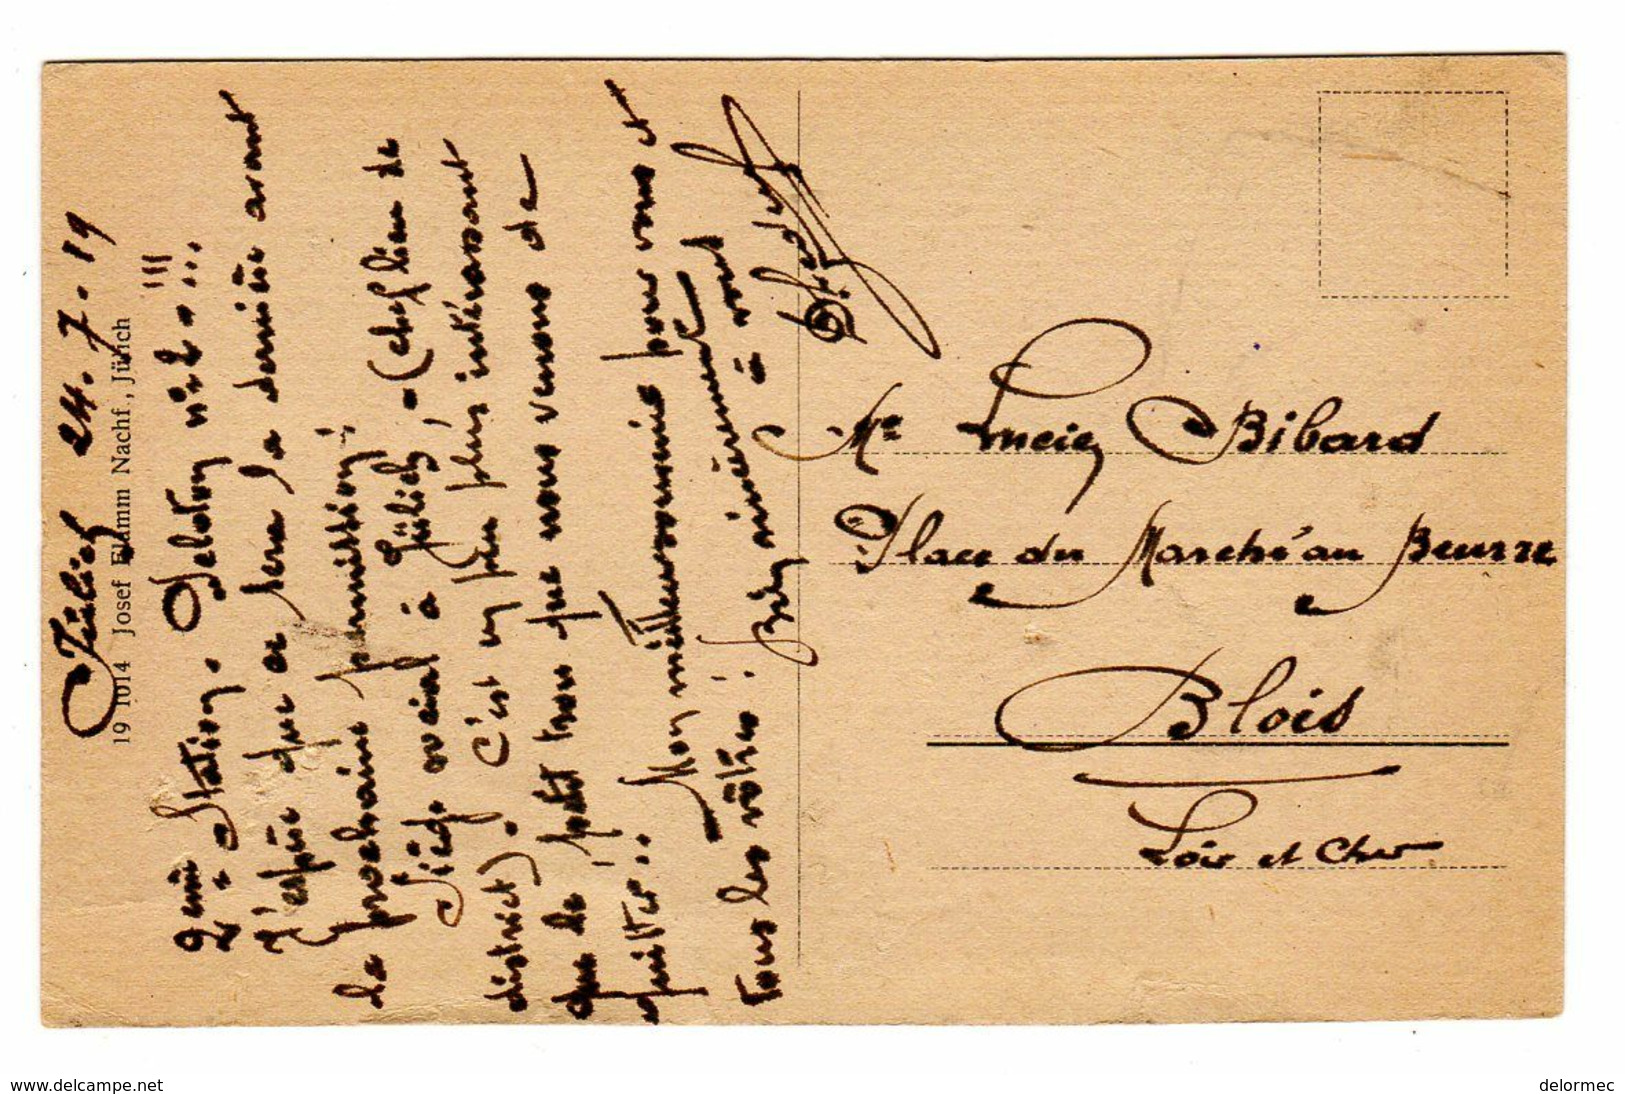 Jülich 24.7.19
19 1014 Josef Flamm Nachf., Jülich
2ème Station. Peloton n°2 !!!
J'espère que ce sera la dernière avant
la prochaine permission;
Siège social à Jülich, (chef lieu de
district). C'est un peu plus intéressant
que le petit trou que nous venons de
quitter..
Mon meilleur souvenir pour vous et
tous les vôtres. Bien sincèrement
à vous
Me Lucien Bibard
Place du Marché au Beurre
Blois
Loir et Cher
www.delcampe.net
delormec